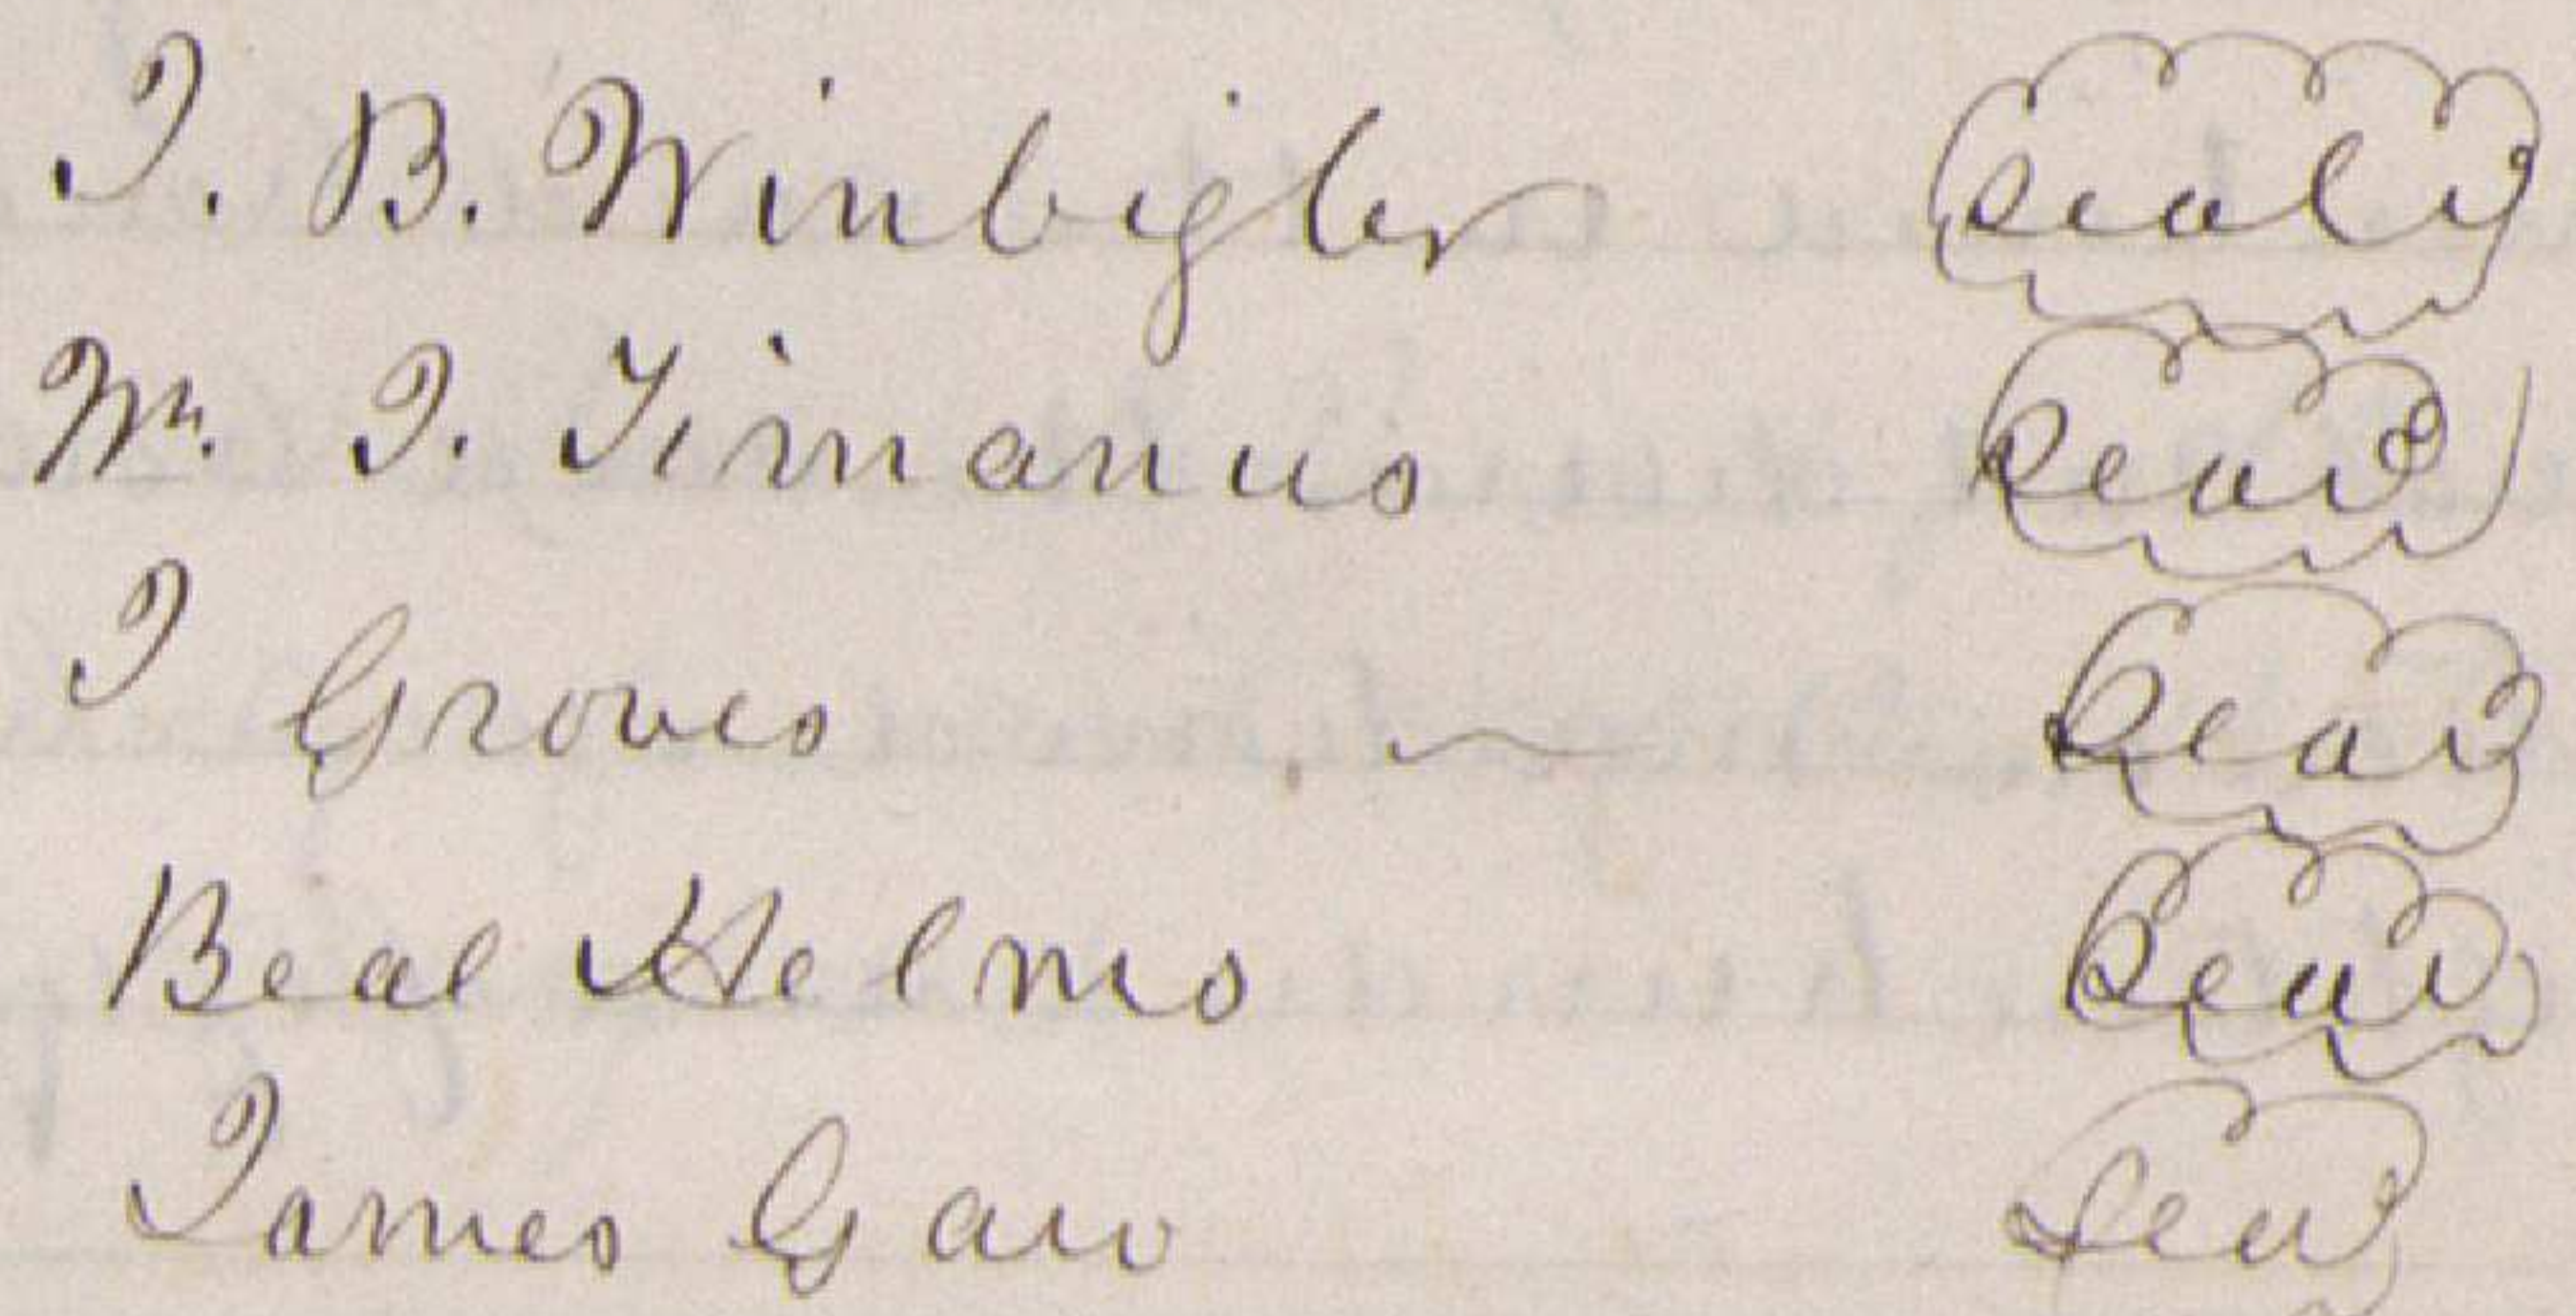 J. B. Winbigler seal
Wm. J. Timanus seal
J Groves seal
Beal Helms seal
James Gaw seal